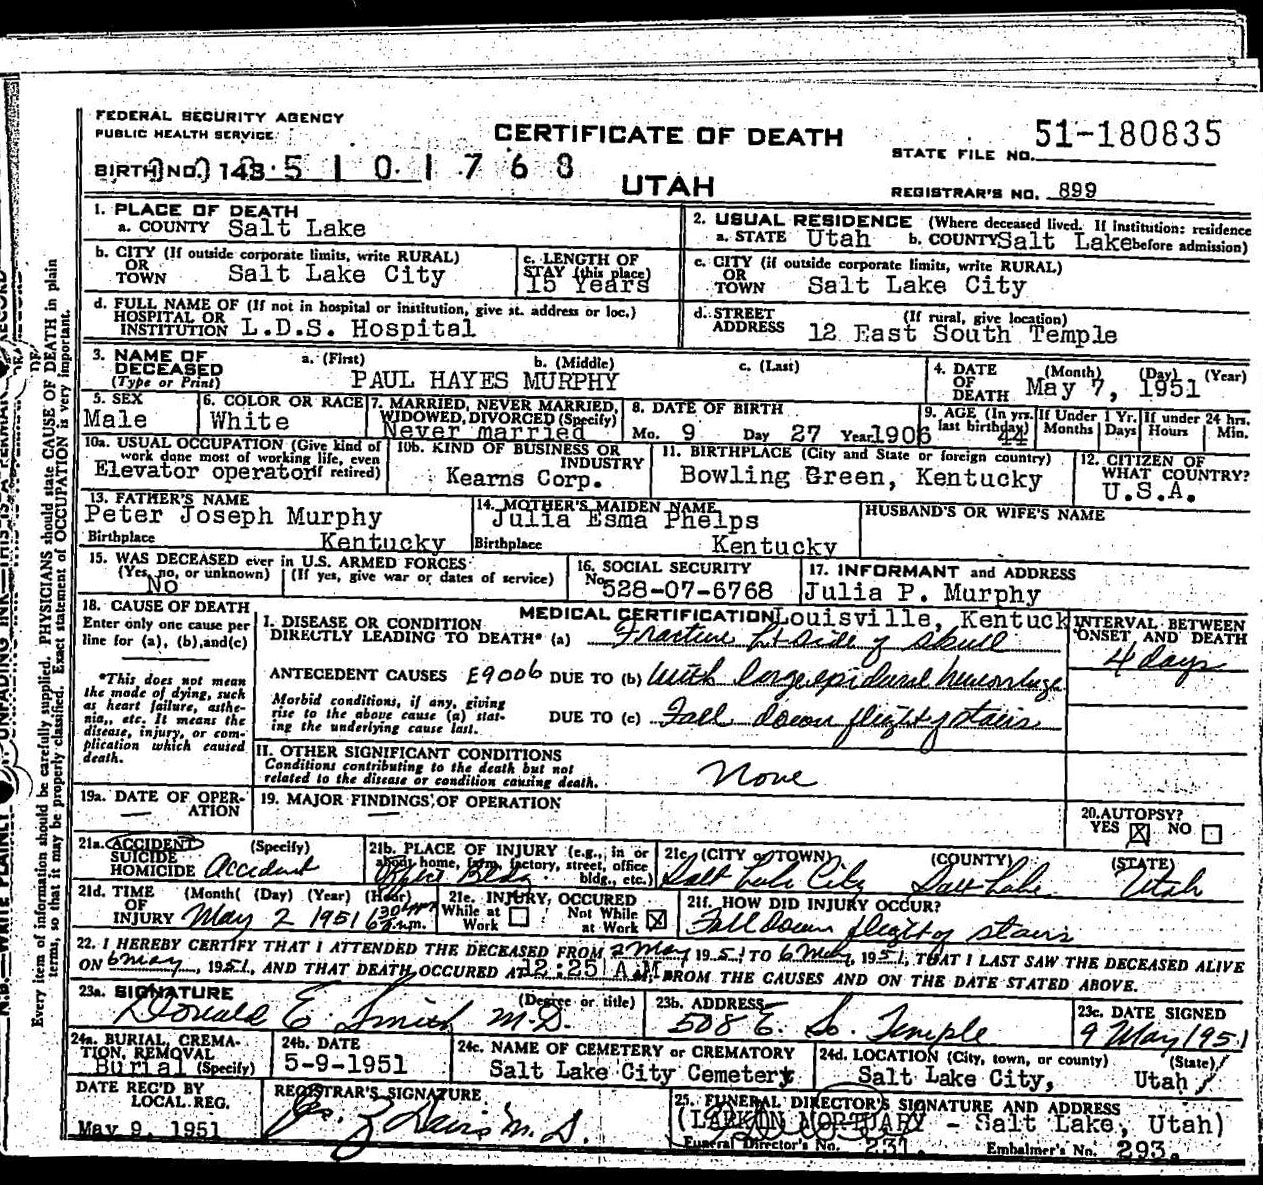 FEDERAL SECURITY AGENCY
PUBLIC HEALTH SERVICE
CERTIFICATE OF DEATH
UTAH
STATE FILE NO. 51-180835
REGISTRAR'S NO. 899
BIRTH NO. 143 510 1768
1. PLACE OF DEATH
a. COUNTY Salt Lake
b. CITY (If outside corporate limits, write RURAL)
OR
TOWN Salt Lake City
c. LENGTH OF
STAY (this place)
15 Years
d. FULL NAME OF (If not in hospital or institution, give st. address or loc.)
HOSPITAL OR
INSTITUTION L.D.S. Hospital
2. USUAL RESIDENCE (Where deceased lived. If institution: residence
a. STATE Utah b. COUNTY Salt Lake before admission)
c. CITY (if outside corporate limits, write RURAL)
OR
TOWN Salt Lake City
d. STREET (If rural, give location)
ADDRESS 12 East South Temple
3. NAME OF
DECEASED
(Type or Print)
a. (First) b. (Middle) c. (Last)
PAUL HAYES MURPHY
4. DATE (Month) (Day) (Year)
OF
DEATH May 7, 1951
5. SEX
Male
6. COLOR OR RACE
White
7. MARRIED, NEVER MARRIED,
WIDOWED, DIVORCED (Specify)
Never married
8. DATE OF BIRTH
Mo. 9 Day 27 Year 1906
9. AGE (In yrs.
last birthday)
44
If Under 1 Yr.
Months Days
If under 24 hrs.
Hours Min.
10a. USUAL OCCUPATION (Give kind of
work done most of working life, even
if retired)
Elevator operator
10b. KIND OF BUSINESS OR
INDUSTRY
Kearns Corp.
11. BIRTHPLACE (City and State or foreign country)
Bowling Green, Kentucky
12. CITIZEN OF
WHAT COUNTRY?
U.S.A.
13. FATHER'S NAME
Peter Joseph Murphy
Birthplace Kentucky
14. MOTHER'S MAIDEN NAME
Julia Esma Phelps
Birthplace Kentucky
HUSBAND'S OR WIFE'S NAME
15. WAS DECEASED ever in U.S. ARMED FORCES
(Yes, no, or unknown) (If yes, give war or dates of service)
No
16. SOCIAL SECURITY
No. 528-07-6768
17. INFORMANT and ADDRESS
Julia P. Murphy
Louisville, Kentuck
18. CAUSE OF DEATH
Enter only one cause per
line for (a), (b), and (c)
*This does not mean
the mode of dying, such
as heart failure, asthe-
nia, etc. It means the
disease, injury, or com-
plication which caused
death.
MEDICAL CERTIFICATION
I. DISEASE OR CONDITION
DIRECTLY LEADING TO DEATH* (a) Fracture Lt side of skull
ANTECEDENT CAUSES E9006 DUE TO (b) With large epidural hemorrhage
Morbid conditions, if any, giving
rise to the above cause (a) stat-
ing the underlying cause last.
DUE TO (c) Fall down flight of stairs
INTERVAL BETWEEN
ONSET AND DEATH
4 days
II. OTHER SIGNIFICANT CONDITIONS
Conditions contributing to the death but not
related to the disease or condition causing death.
None
19a. DATE OF OPER-
ATION
—
19. MAJOR FINDINGS OF OPERATION
—
20. AUTOPSY?
YES X NO
21a. ACCIDENT (Specify)
SUICIDE
HOMICIDE Accident
21b. PLACE OF INJURY (e.g., in or
about home, farm, factory, street, office
bldg., etc.)
Bldg
21c. (CITY or TOWN) (COUNTY) (STATE)
Salt Lake City Salt Lake Utah
21d. TIME (Month) (Day) (Year) (Hour)
OF
INJURY May 2 1951 6:30 m.
21e. INJURY OCCURED
While at Work Not While at Work X
21f. HOW DID INJURY OCCUR?
Fall down flight of stairs
22. I HEREBY CERTIFY THAT I ATTENDED THE DECEASED FROM 2 May 1951 TO 6 May, 1951, THAT I LAST SAW THE DECEASED ALIVE
ON 6 may, 1951, AND THAT DEATH OCCURED AT 12:25 A.M. FROM THE CAUSES AND ON THE DATE STATED ABOVE.
23a. SIGNATURE (Degree or title)
Donald E. Smith M.D.
23b. ADDRESS
508 E. So. Temple
23c. DATE SIGNED
9 May 1951
24a. BURIAL, CREMA-
TION, REMOVAL
Burial (Specify)
24b. DATE
5-9-1951
24c. NAME OF CEMETERY or CREMATORY
Salt Lake City Cemetery
24d. LOCATION (City, town, or county) (State)
Salt Lake City, Utah
DATE REC'D BY
LOCAL REG.
May 9, 1951
REGISTRAR'S SIGNATURE
Davis M.D.
25. FUNERAL DIRECTOR'S SIGNATURE AND ADDRESS
(LARKIN MORTUARY - Salt Lake, Utah)
Funeral Director's No. 231. Embalmer's No. 293.
Every item of information should be carefully supplied. PHYSICIANS should state CAUSE OF DEATH in plain
terms, so that it may be properly classified. Exact statement of OCCUPATION is very important.